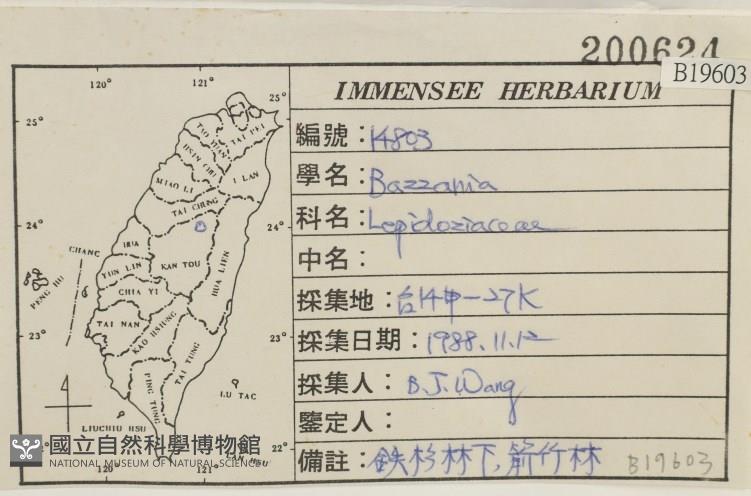 200624
B19603
IMMENSEE HERBARIUM
編號：14803
學名：Bazzania
科名：Lepidoziaceae
中名：
採集地：台14甲-27K
採集日期：1988.11.12
採集人：B.J.Wang
鑒定人：
備註：鉄杉林下,箭竹林
B19603
120°
121°
25°
25°
TAI PEI
TAO YUAN
HSIN CHU
I LAN
MIAO LI
TAI CHUNG
24°
24°
CHANG
HUA
PENG HU
YUN LIN
KAN TOU
HUA LIEN
CHIA YI
23°
23°
TAI NAN
KAO HSIUNG
TAI TUNG
PING TUNG
LU TAC
LIUCHIU HSU
22°
LAN HSU
120°
121°
國立自然科學博物館
NATIONAL MUSEUM OF NATURAL SCIENCE